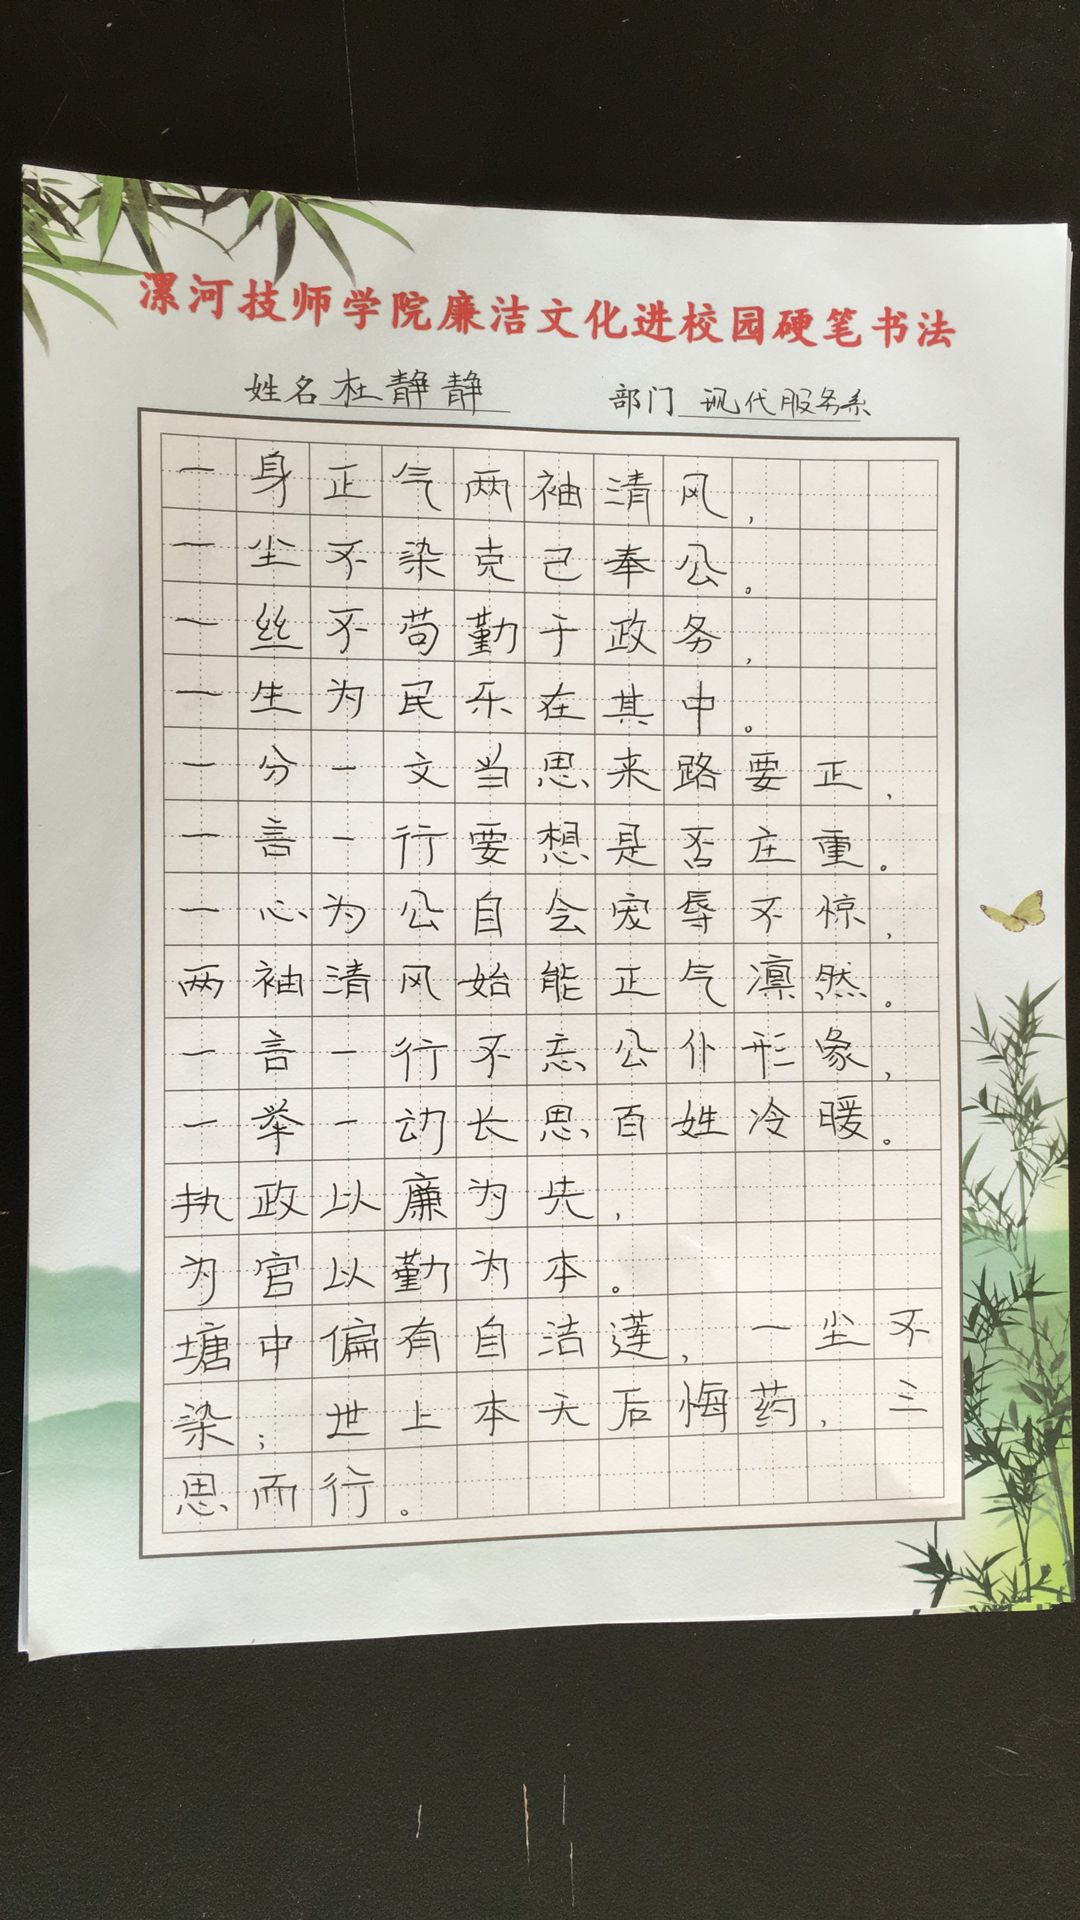 漯河技师学院廉洁文化进校园硬笔书法
姓名 杜静静 部门 现代服务系
一身正气两袖清风，
一尘不染克己奉公。
一丝不苟勤于政务，
一生为民乐在其中。
一分一文当思来路要正，
一言一行要想是否庄重。
一心为公自会宠辱不惊，
两袖清风始能正气凛然。
一言一行不忘公仆形象，
一举一动长思百姓冷暖。
执政以廉为先，
为官以勤为本。
塘中偏有自洁莲，一尘不
染；世上本无后悔药，三
思而行。